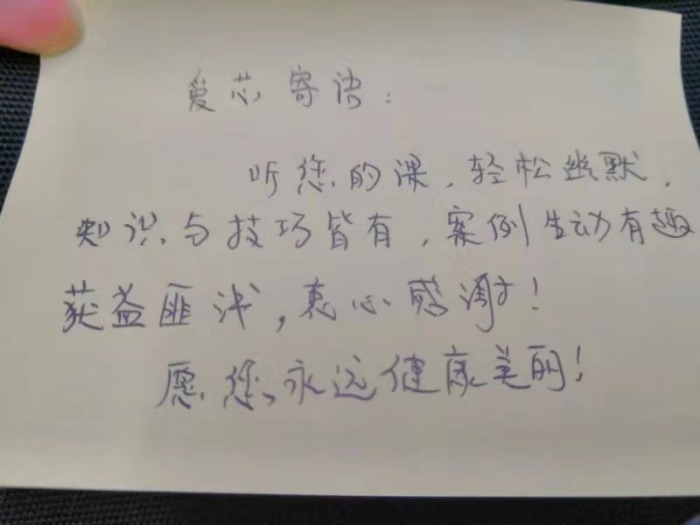 爱芯寄语：
听您的课，轻松幽默，
知识与技巧皆有，案例生动有趣
获益匪浅，衷心感谢！
愿您永远健康美丽！